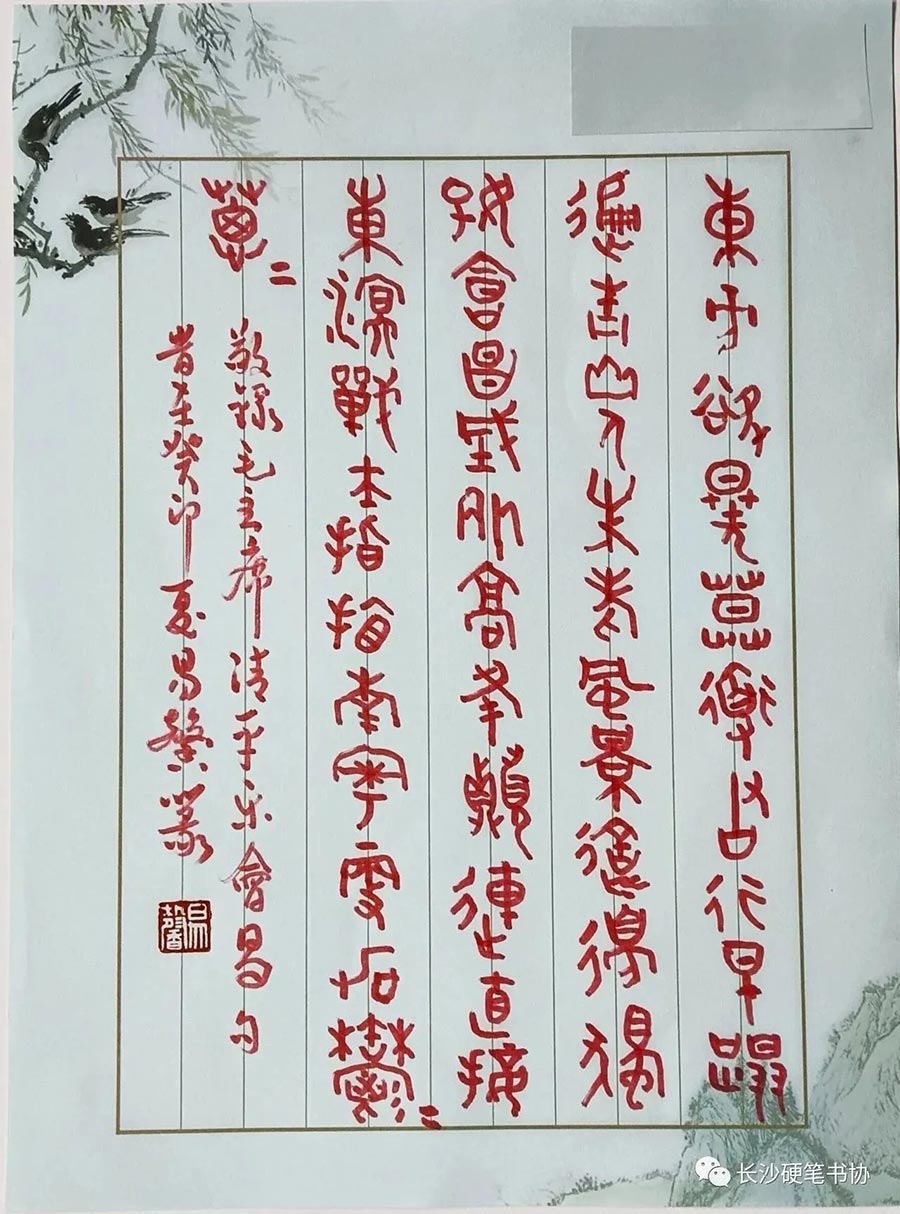 東方欲曉莫道君行早踏
遍青山人未老風景這邊獨
好會昌城外高峰顛連直接
東溟戰士指看南粵更加鬱〻
蔥〻
敬錄毛主席清平乐會昌句
峕在癸卯夏易馨篆
易馨
长沙硬笔书协